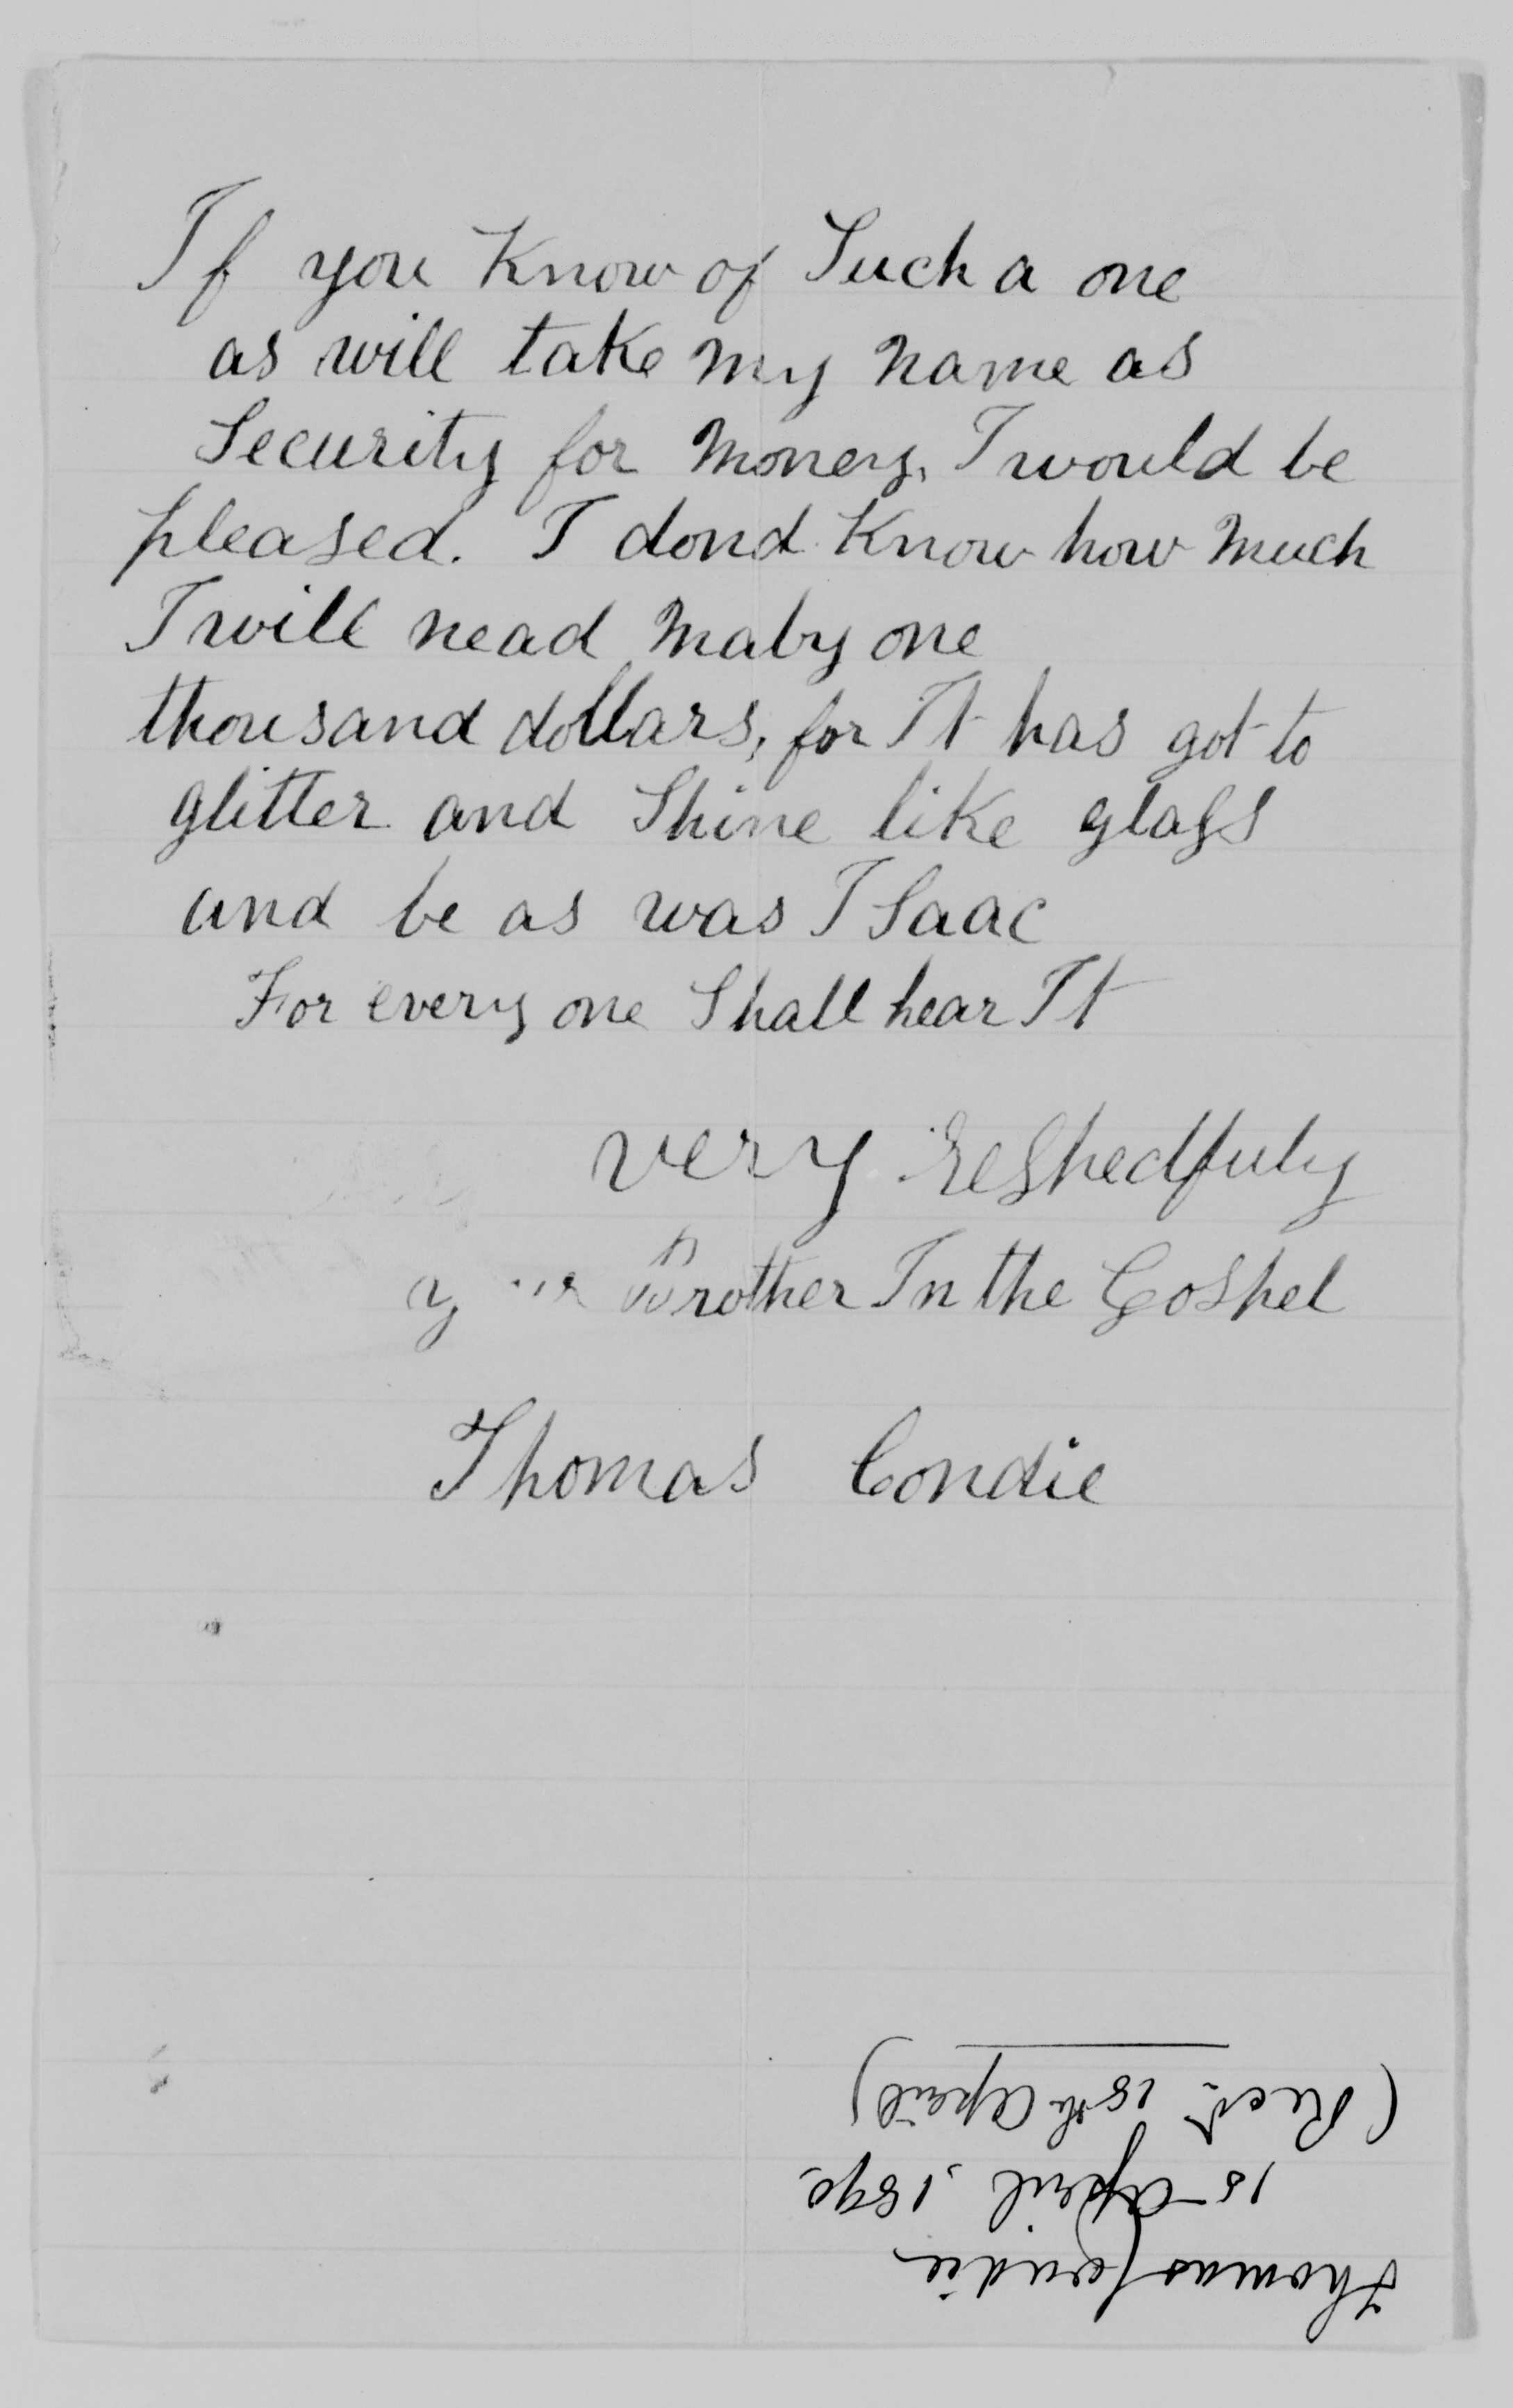 If you Know of Such a one
as will take my name as
Security for money, I would be
pleased. I dond Know how much
I will nead maby one
thousand dollars, for It has got to
glitter and Shine like glass
and be as was ISaac
For every one Shall hear It
very respedfuly
your Brother In the Gospel
Thomas Condie
Thomas Condie
15 April, 1890.
(Recd. 18th April)